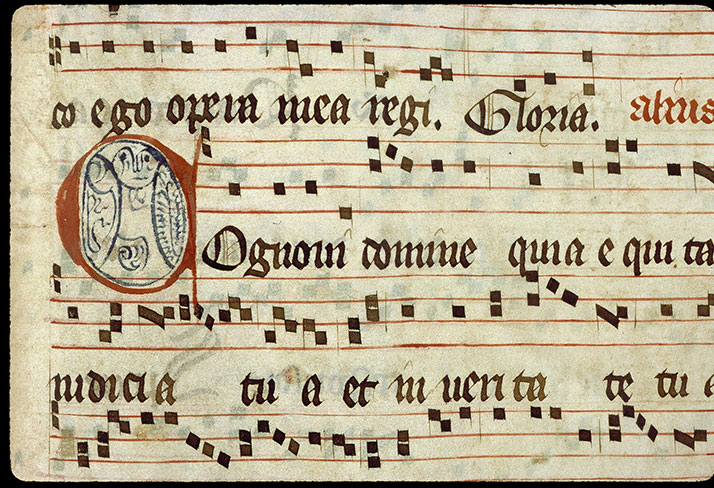 co ego opera mea regi. Gloria. alius
Ognoui domine quia equita
iudicia tua et in ueritate tua